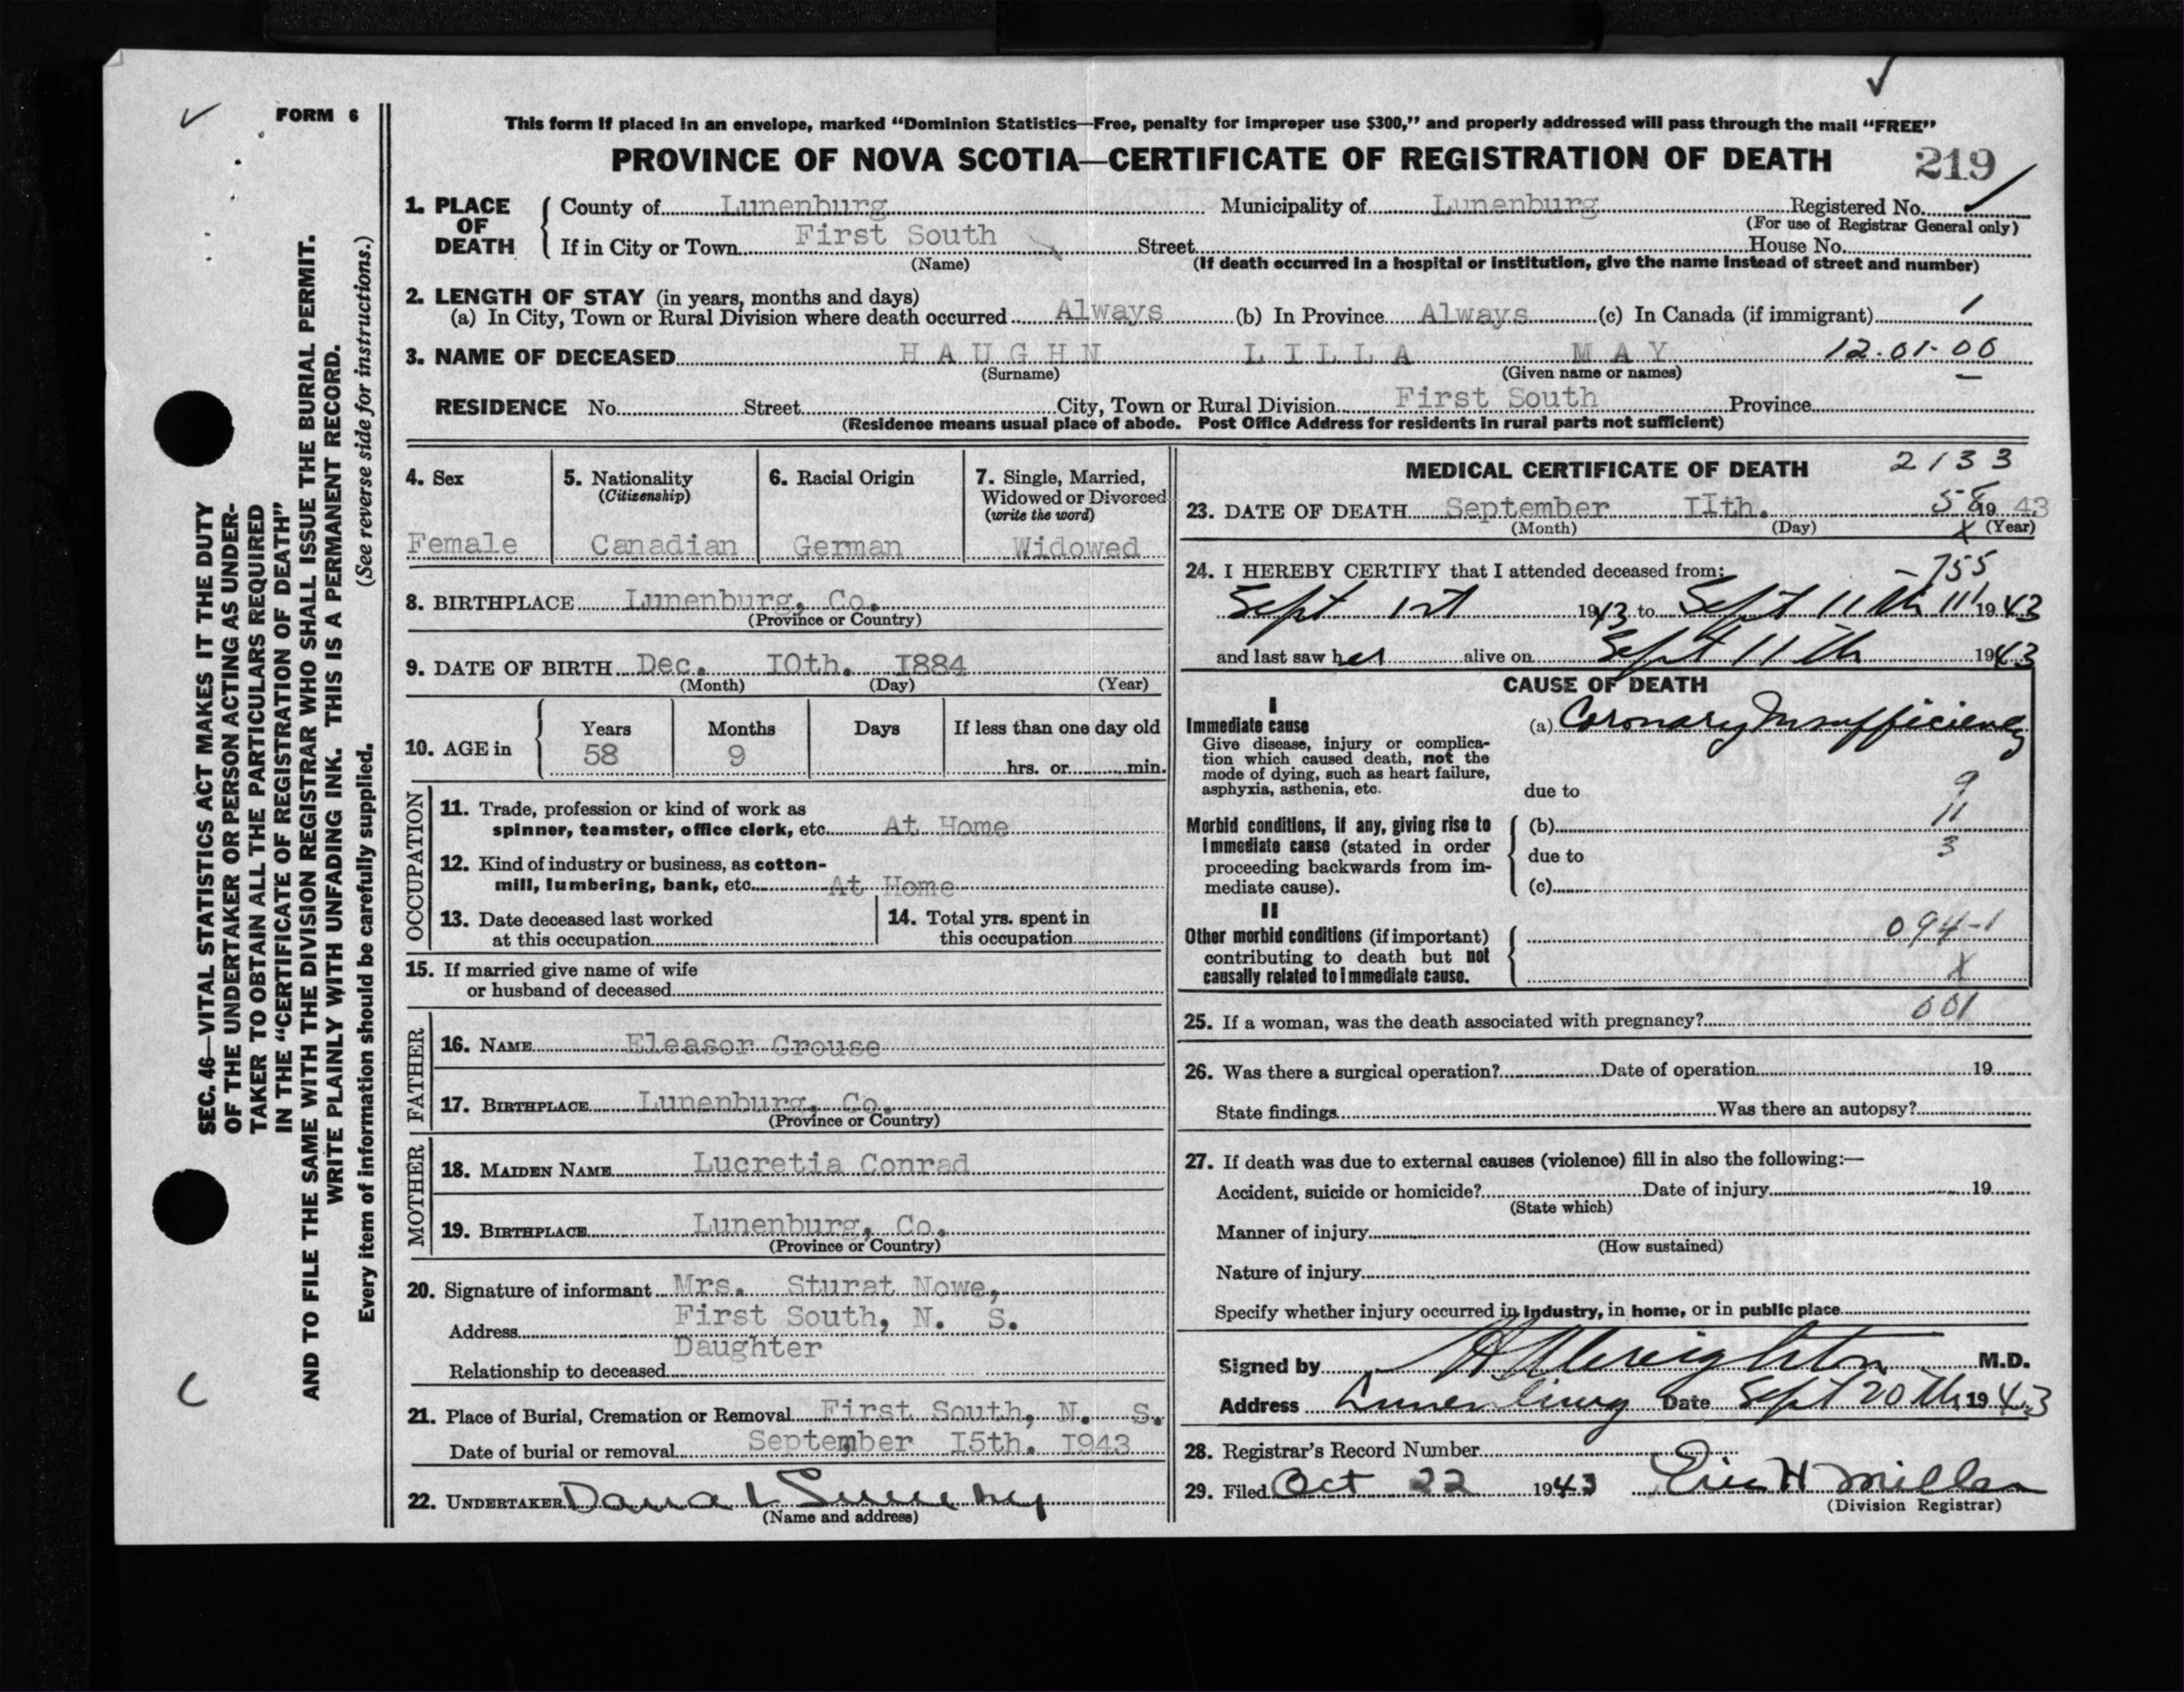 FORM 6
This form if placed in an envelope, marked “Dominion Statistics—Free, penalty for improper use $300,” and properly addressed will pass through the mail “FREE”
PROVINCE OF NOVA SCOTIA—CERTIFICATE OF REGISTRATION OF DEATH 219
1. PLACE OF DEATH County of Lunenburg Municipality of Lunenburg Registered No.
(For use of Registrar General only)
If in City or Town First South Street House No.
(Name) (If death occurred in a hospital or institution, give the name instead of street and number)
2. LENGTH OF STAY (in years, months and days)
(a) In City, Town or Rural Division where death occurred Always (b) In Province Always (c) In Canada (if immigrant) 1
3. NAME OF DECEASED HAUGHN LILLA MAY 12.01.00
(Surname) (Given name or names)
RESIDENCE No. Street City, Town or Rural Division First South Province
(Residence means usual place of abode. Post Office Address for residents in rural parts not sufficient)
4. Sex
Female
5. Nationality
(Citizenship)
Canadian
6. Racial Origin
German
7. Single, Married,
Widowed or Divorced
(write the word)
Widowed
8. BIRTHPLACE Lunenburg, Co.
(Province or Country)
9. DATE OF BIRTH Dec. IOth. I884
(Month) (Day) (Year)
10. AGE in Years Months Days If less than one day old
58 9 hrs. or min.
OCCUPATION
11. Trade, profession or kind of work as
spinner, teamster, office clerk, etc. At Home
12. Kind of industry or business, as cotton-
mill, lumbering, bank, etc. At Home
13. Date deceased last worked
at this occupation
14. Total yrs. spent in
this occupation
15. If married give name of wife
or husband of deceased
FATHER
16. NAME Eleasor Crouse
17. BIRTHPLACE Lunenburg, Co.
(Province or Country)
MOTHER
18. MAIDEN NAME Lucretia Conrad
19. BIRTHPLACE Lunenburg, Co.
(Province or Country)
20. Signature of informant Mrs. Sturat Nowe,
Address First South, N. S.
Relationship to deceased Daughter
21. Place of Burial, Cremation or Removal First South, N. S.
Date of burial or removal September I5th. I943
22. UNDERTAKER
(Name and address)
MEDICAL CERTIFICATE OF DEATH 2133
23. DATE OF DEATH September IIth. 58 19 43
(Month) (Day) X (Year)
24. I HEREBY CERTIFY that I attended deceased from: -755
Sept 1st 1943 to Sept 11th 11' 1943
and last saw her alive on Sept 11th 1943
CAUSE OF DEATH
I
Immediate cause (a) Coronary Insufficiency
Give disease, injury or complica-
tion which caused death, not the
mode of dying, such as heart failure,
asphyxia, asthenia, etc. due to 9
11
Morbid conditions, if any, giving rise to (b)
immediate cause (stated in order due to 3
proceeding backwards from im-
mediate cause). (c)
II
Other morbid conditions (if important) 094-1
contributing to death but not
causally related to immediate cause. X
25. If a woman, was the death associated with pregnancy? 001
26. Was there a surgical operation? Date of operation 19
State findings Was there an autopsy?
27. If death was due to external causes (violence) fill in also the following:—
Accident, suicide or homicide? Date of injury 19
(State which)
Manner of injury
(How sustained)
Nature of injury
Specify whether injury occurred in industry, in home, or in public place
Signed by M.D.
Address Lunenburg Date Sept 20th 1943
28. Registrar's Record Number
29. Filed Oct 22 1943 Eric H Miller
(Division Registrar)
SEC. 46—VITAL STATISTICS ACT MAKES IT THE DUTY
OF THE UNDERTAKER OR PERSON ACTING AS UNDER-
TAKER TO OBTAIN ALL THE PARTICULARS REQUIRED
IN THE “CERTIFICATE OF REGISTRATION OF DEATH”
AND TO FILE THE SAME WITH THE DIVISION REGISTRAR WHO SHALL ISSUE THE BURIAL PERMIT.
WRITE PLAINLY WITH UNFADING INK. THIS IS A PERMANENT RECORD.
Every item of information should be carefully supplied. (See reverse side for instructions.)